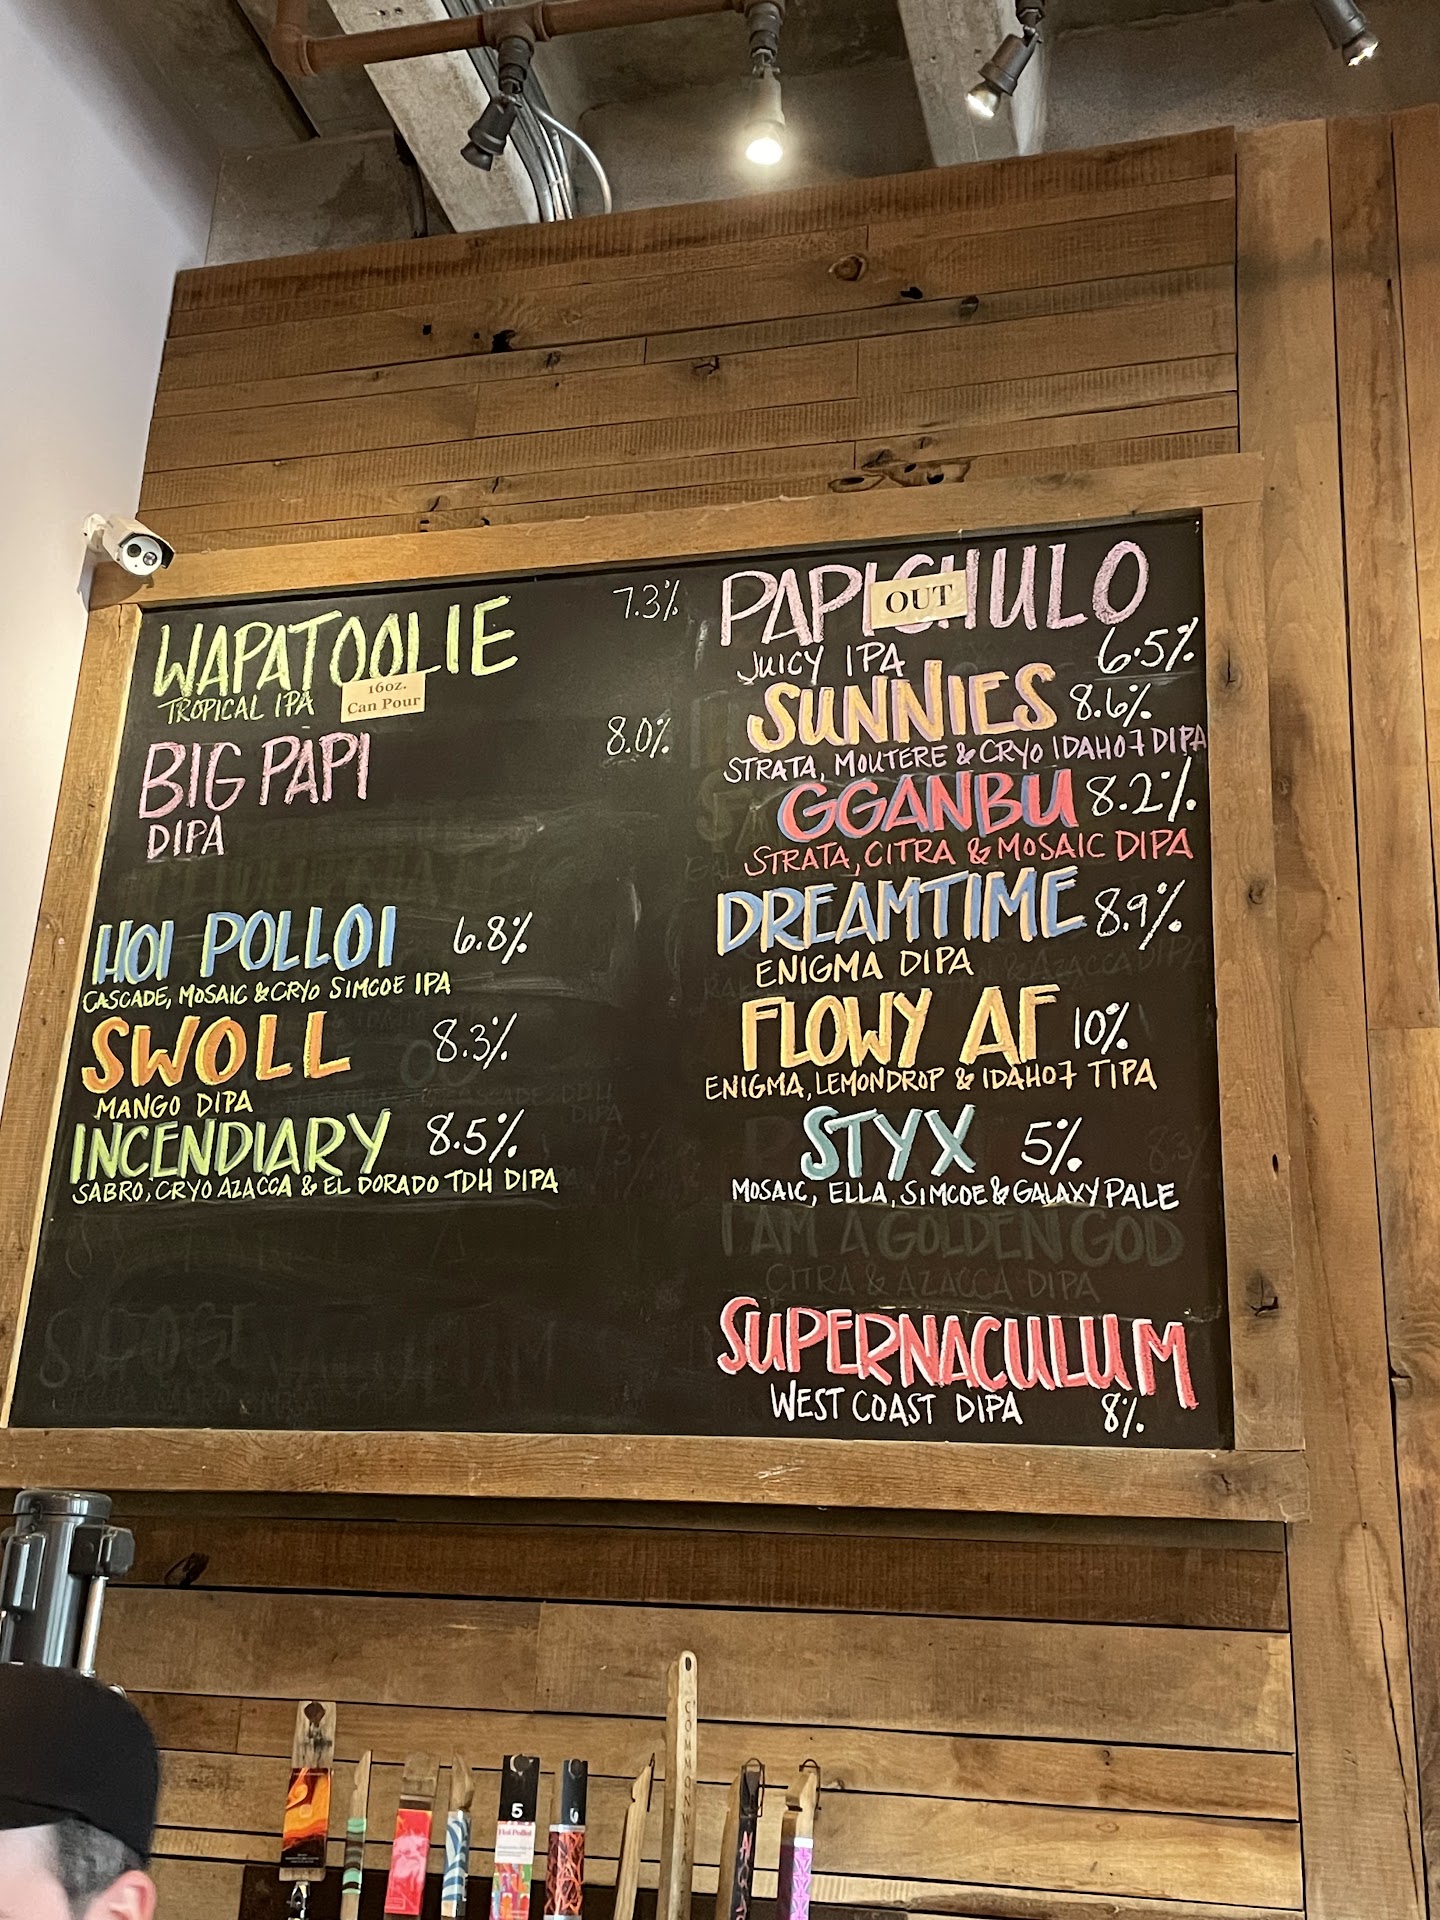 WAPATOOLIE 7.3%
TROPICAL IPA
16oz.
Can Pour
BIG PAPI 8.0%
DIPA
HOI POLLOI 6.8%
CASCADE, MOSAIC & CRYO SIMCOE IPA
SWOLL 8.3%
MANGO DIPA
INCENDIARY 8.5%
SABRO, CRYO AZACCA & EL DORADO TDH DIPA
PAPICHULO
OUT
JUICY IPA 6.5%
SUNNIES 8.6%
STRATA, MOUTERE & CRYO IDAHO7 DIPA
GGANBU 8.2%
STRATA, CITRA & MOSAIC DIPA
DREAMTIME 8.9%
ENIGMA DIPA
FLOWY AF 10%
ENIGMA, LEMONDROP & IDAHO7 TIPA
STYX 5%
MOSAIC, ELLA, SIMCOE & GALAXY PALE
I AM A GOLDEN GOD
CITRA & AZACCA DIPA
SUPERNACULUM
WEST COAST DIPA 8%
COMMON
5
Hoi Polloi
6